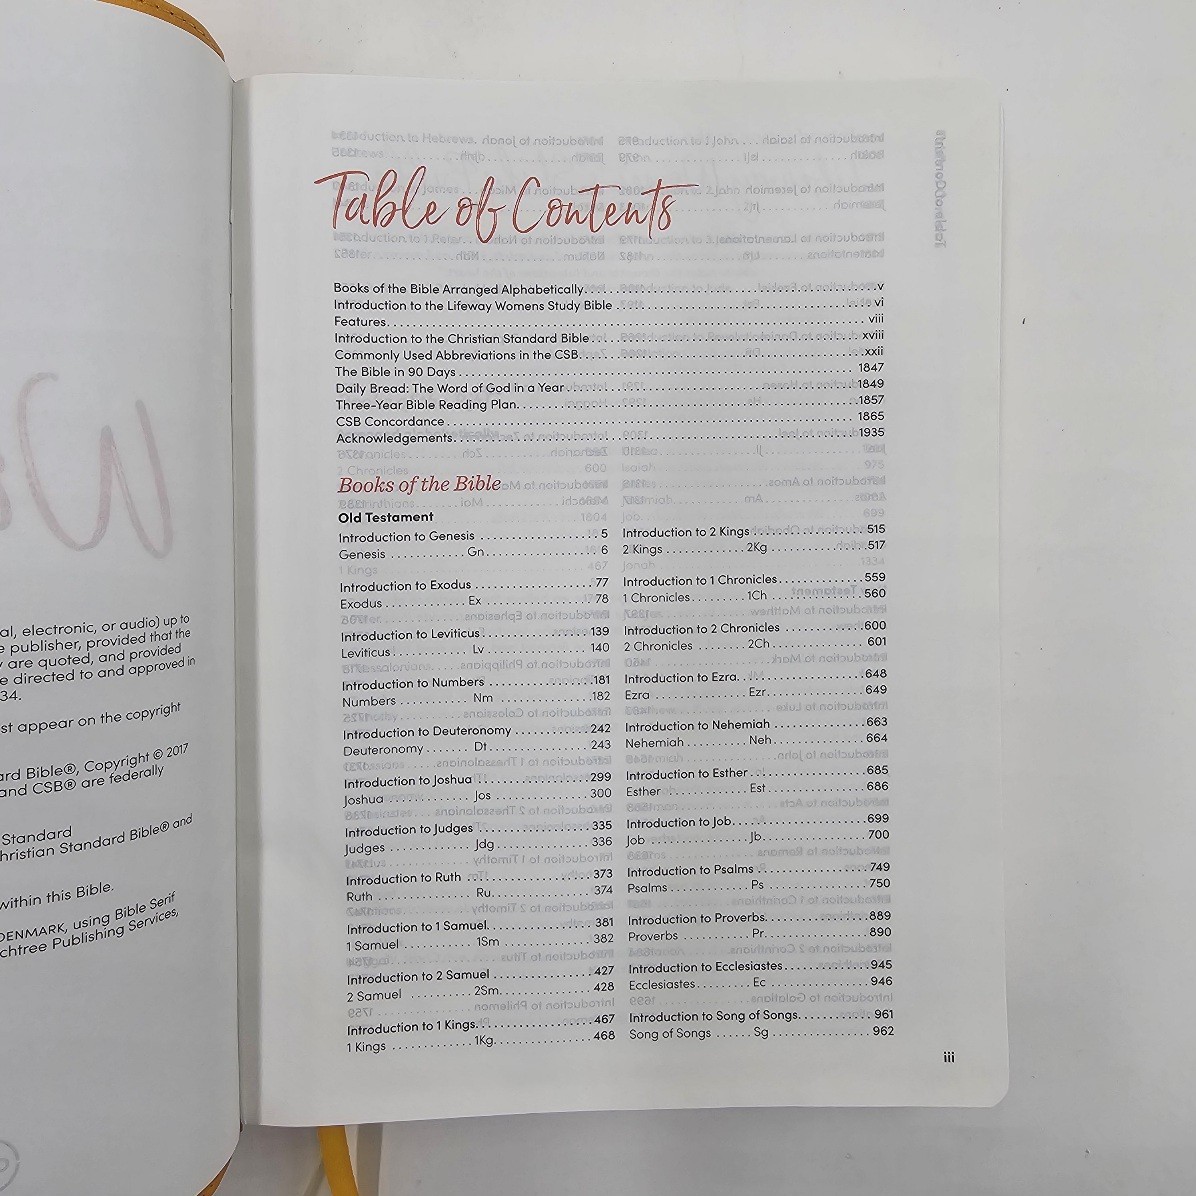 al, electronic, or audio) up to
e publisher, provided that the
y are quoted, and provided
e directed to and approved in
34.
st appear on the copyright
ard Bible®, Copyright © 2017
and CSB® are federally
Standard
hristian Standard Bible® and
within this Bible.
DENMARK, using Bible Serif
chtree Publishing Services,
Table of Contents
Books of the Bible Arranged Alphabetically. v
Introduction to the Lifeway Womens Study Bible vi
Features viii
Introduction to the Christian Standard Bible xviii
Commonly Used Abbreviations in the CSB xxii
The Bible in 90 Days 1847
Daily Bread: The Word of God in a Year 1849
Three-Year Bible Reading Plan 1857
CSB Concordance 1865
Acknowledgements 1935
Books of the Bible
Old Testament
Introduction to Genesis 5
Genesis Gn 6
Introduction to Exodus 77
Exodus Ex 78
Introduction to Leviticus 139
Leviticus Lv 140
Introduction to Numbers 181
Numbers Nm 182
Introduction to Deuteronomy 242
Deuteronomy Dt 243
Introduction to Joshua 299
Joshua Jos 300
Introduction to Judges 335
Judges Jdg 336
Introduction to Ruth 373
Ruth Ru 374
Introduction to 1 Samuel 381
1 Samuel 1Sm 382
Introduction to 2 Samuel 427
2 Samuel 2Sm 428
Introduction to 1 Kings 467
1 Kings 1Kg 468
Introduction to 2 Kings 515
2 Kings 2Kg 517
Introduction to 1 Chronicles 559
1 Chronicles 1Ch 560
Introduction to 2 Chronicles 600
2 Chronicles 2Ch 601
Introduction to Ezra 648
Ezra Ezr 649
Introduction to Nehemiah 663
Nehemiah Neh 664
Introduction to Esther 685
Esther Est 686
Introduction to Job 699
Job Jb 700
Introduction to Psalms 749
Psalms Ps 750
Introduction to Proverbs 889
Proverbs Pr 890
Introduction to Ecclesiastes 945
Ecclesiastes Ec 946
Introduction to Song of Songs 961
Song of Songs Sg 962
iii